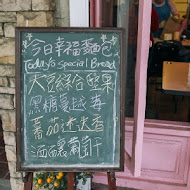 今日幸福麵包
Today's Special Bread
大豆綜合堅果
黑糖蔓越莓
番茄迷迭香
酒釀葡萄干